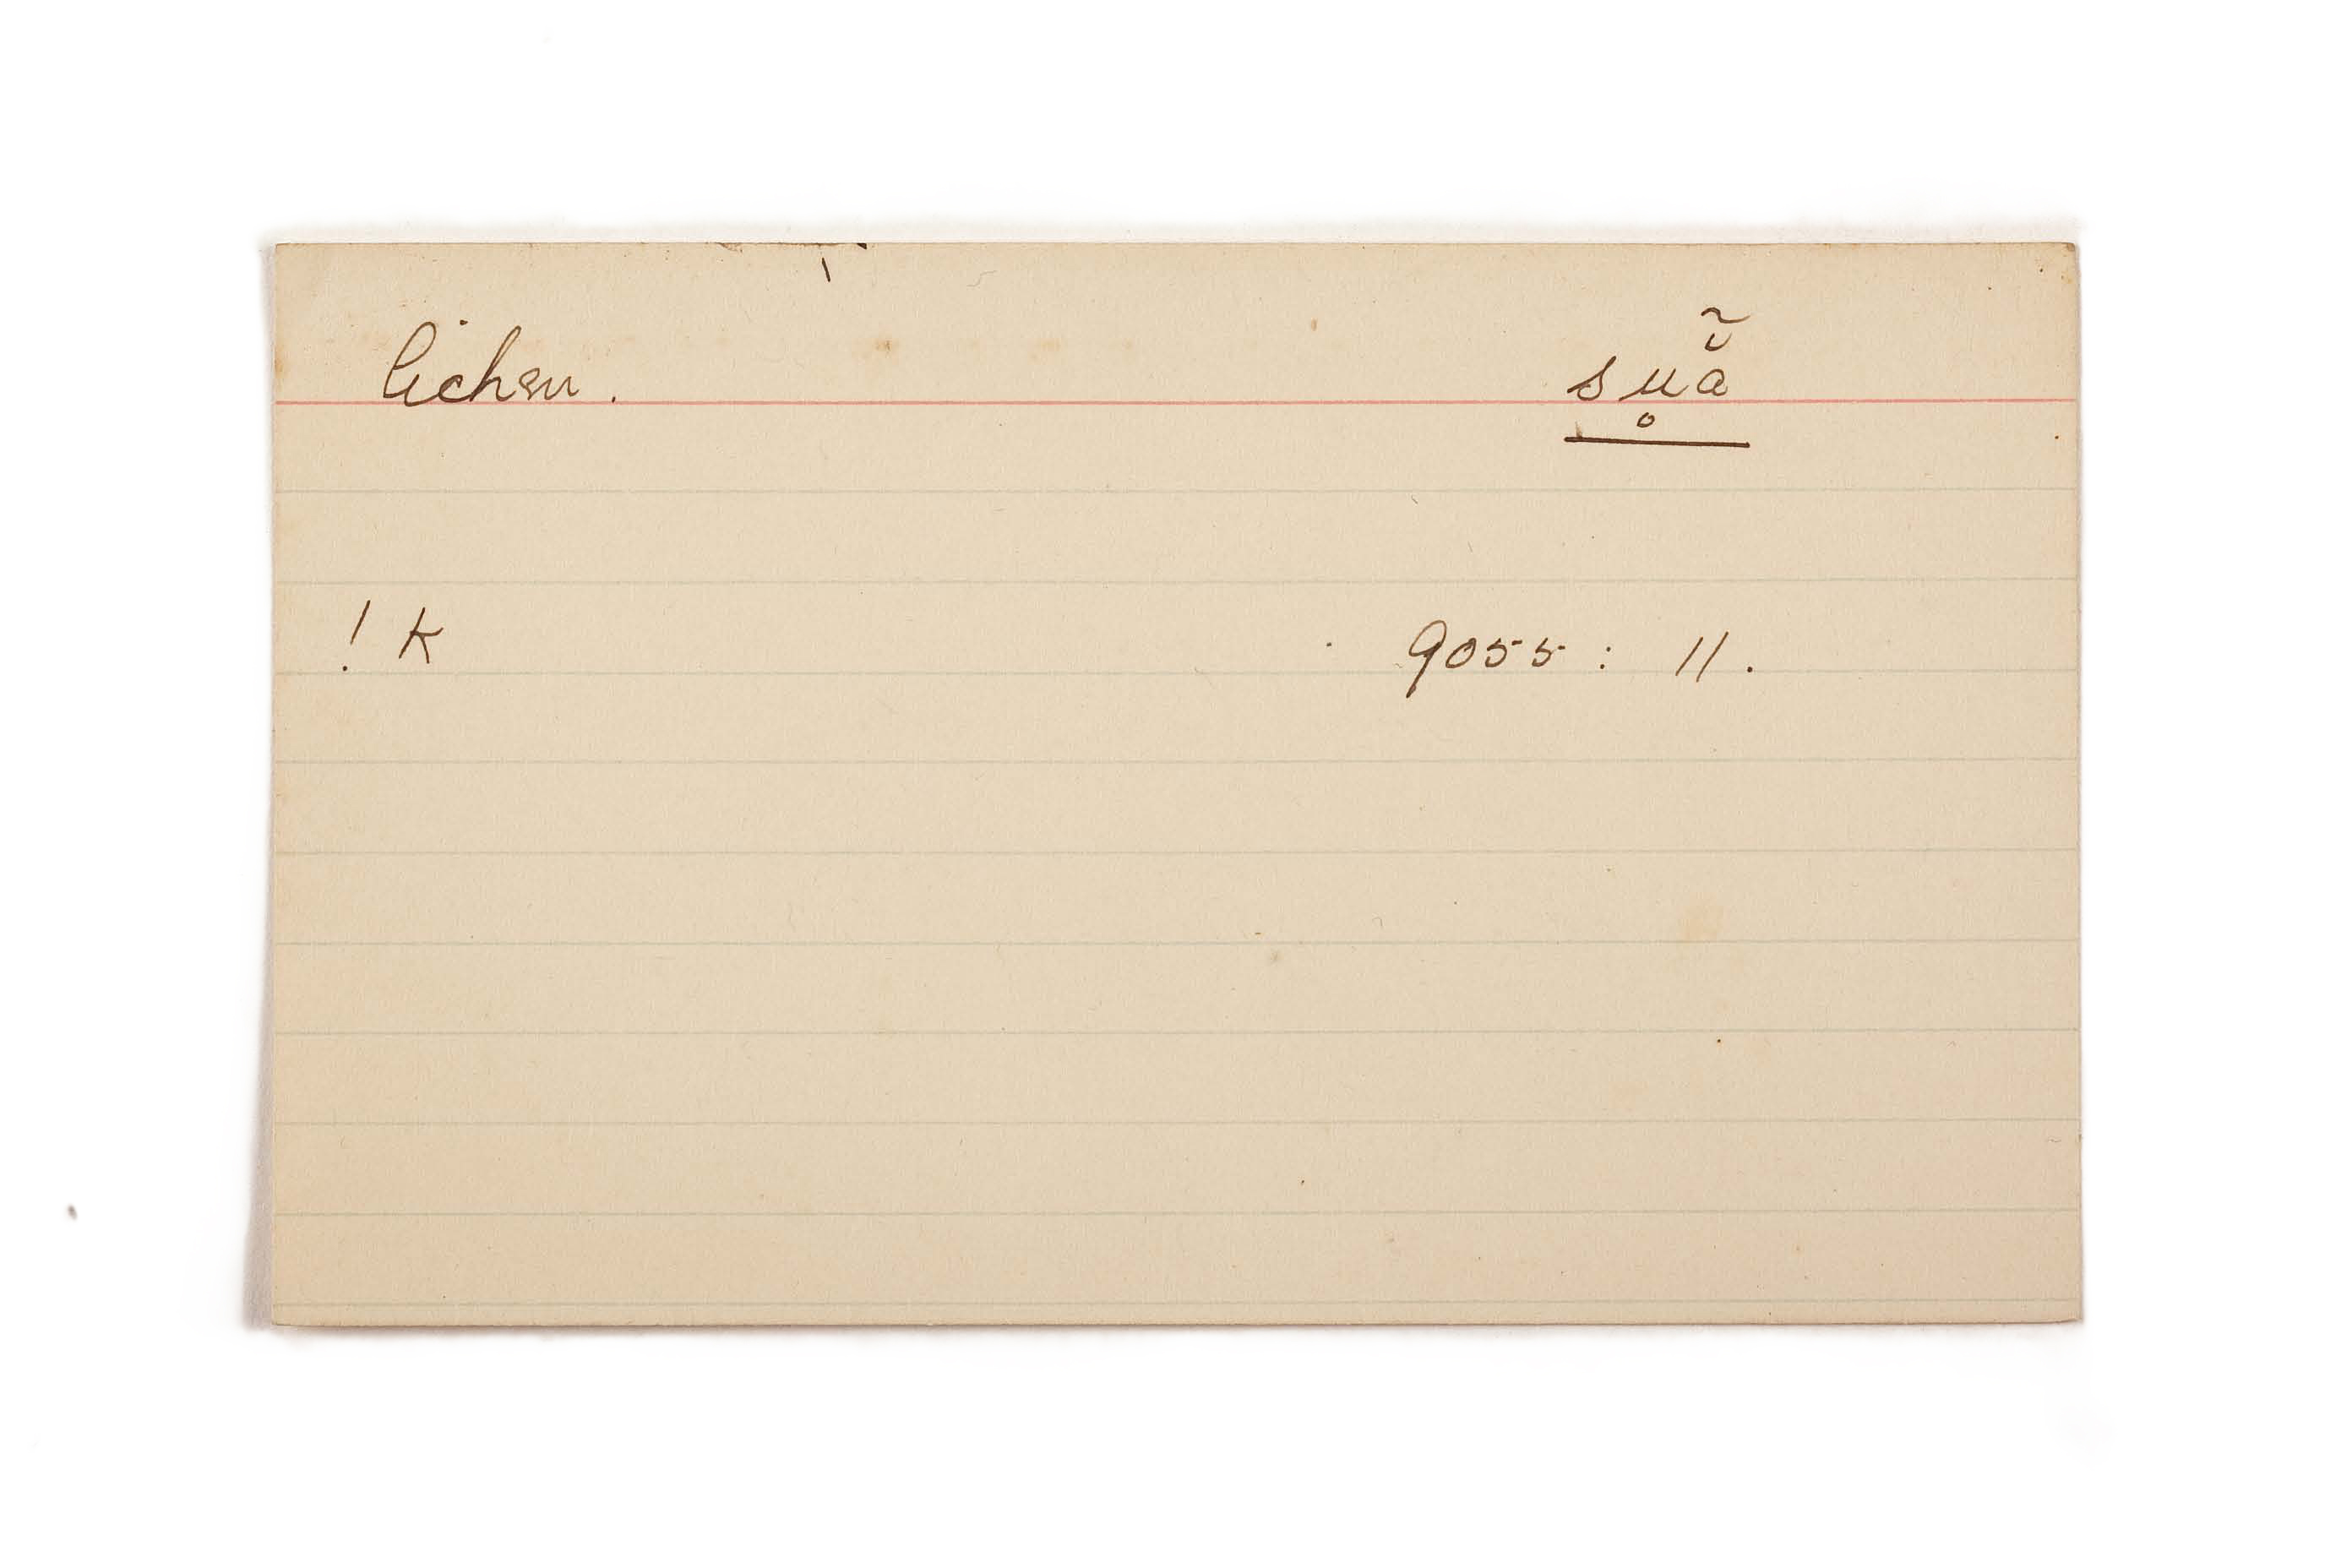 lichen. sụ̥ẵ
! K 9055 : 11.